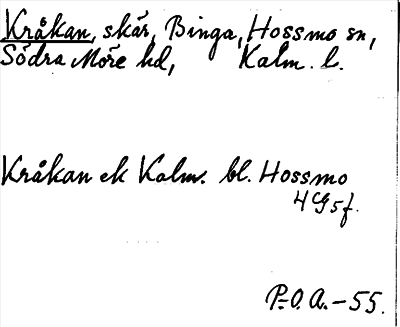 Kråkan, skär, Binga, Hossmo sn,
Södra Möre hd, Kalm. l.
Kråkan ek Kalm. bl. Hossmo
4G5f.
P.O.A. - 55.